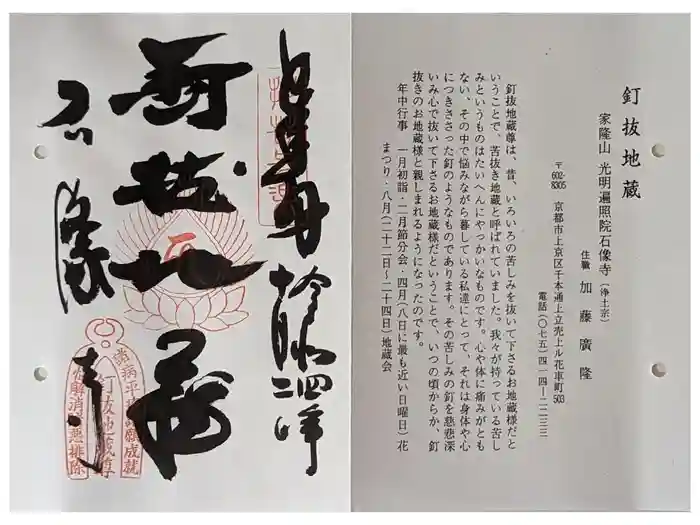 釘抜地蔵
家隆山 光明遍照院石像寺(浄土宗)
住職 加藤廣隆
〒602-8305 京都市上京区千本通上立売上ル花車町503
電話(〇七五)四一四ー二二三三
釘抜地蔵尊は、昔、いろいろの苦しみを抜いて下さるお地蔵様だと
いうことで、苦抜き地蔵と呼ばれていました。我々が持っている苦し
みというものはたいへんにやっかいなものです。心や体に痛みがとも
ない、その中で悩みながら暮している私達にとって、それは身体や心
につきささった釘のようなものであります。その苦しみの釘を慈悲深
いみ心で抜いて下さるお地蔵様だということで、いつの頃からか、釘
抜きのお地蔵様と親しまれるようになったのです。
年中行事 一月初詣・二月節分会・四月(八日に最も近い日曜日)花
まつり・八月(二十二日〜二十四日)地蔵会
釘抜地蔵
石像寺
諸病平癒所願成就